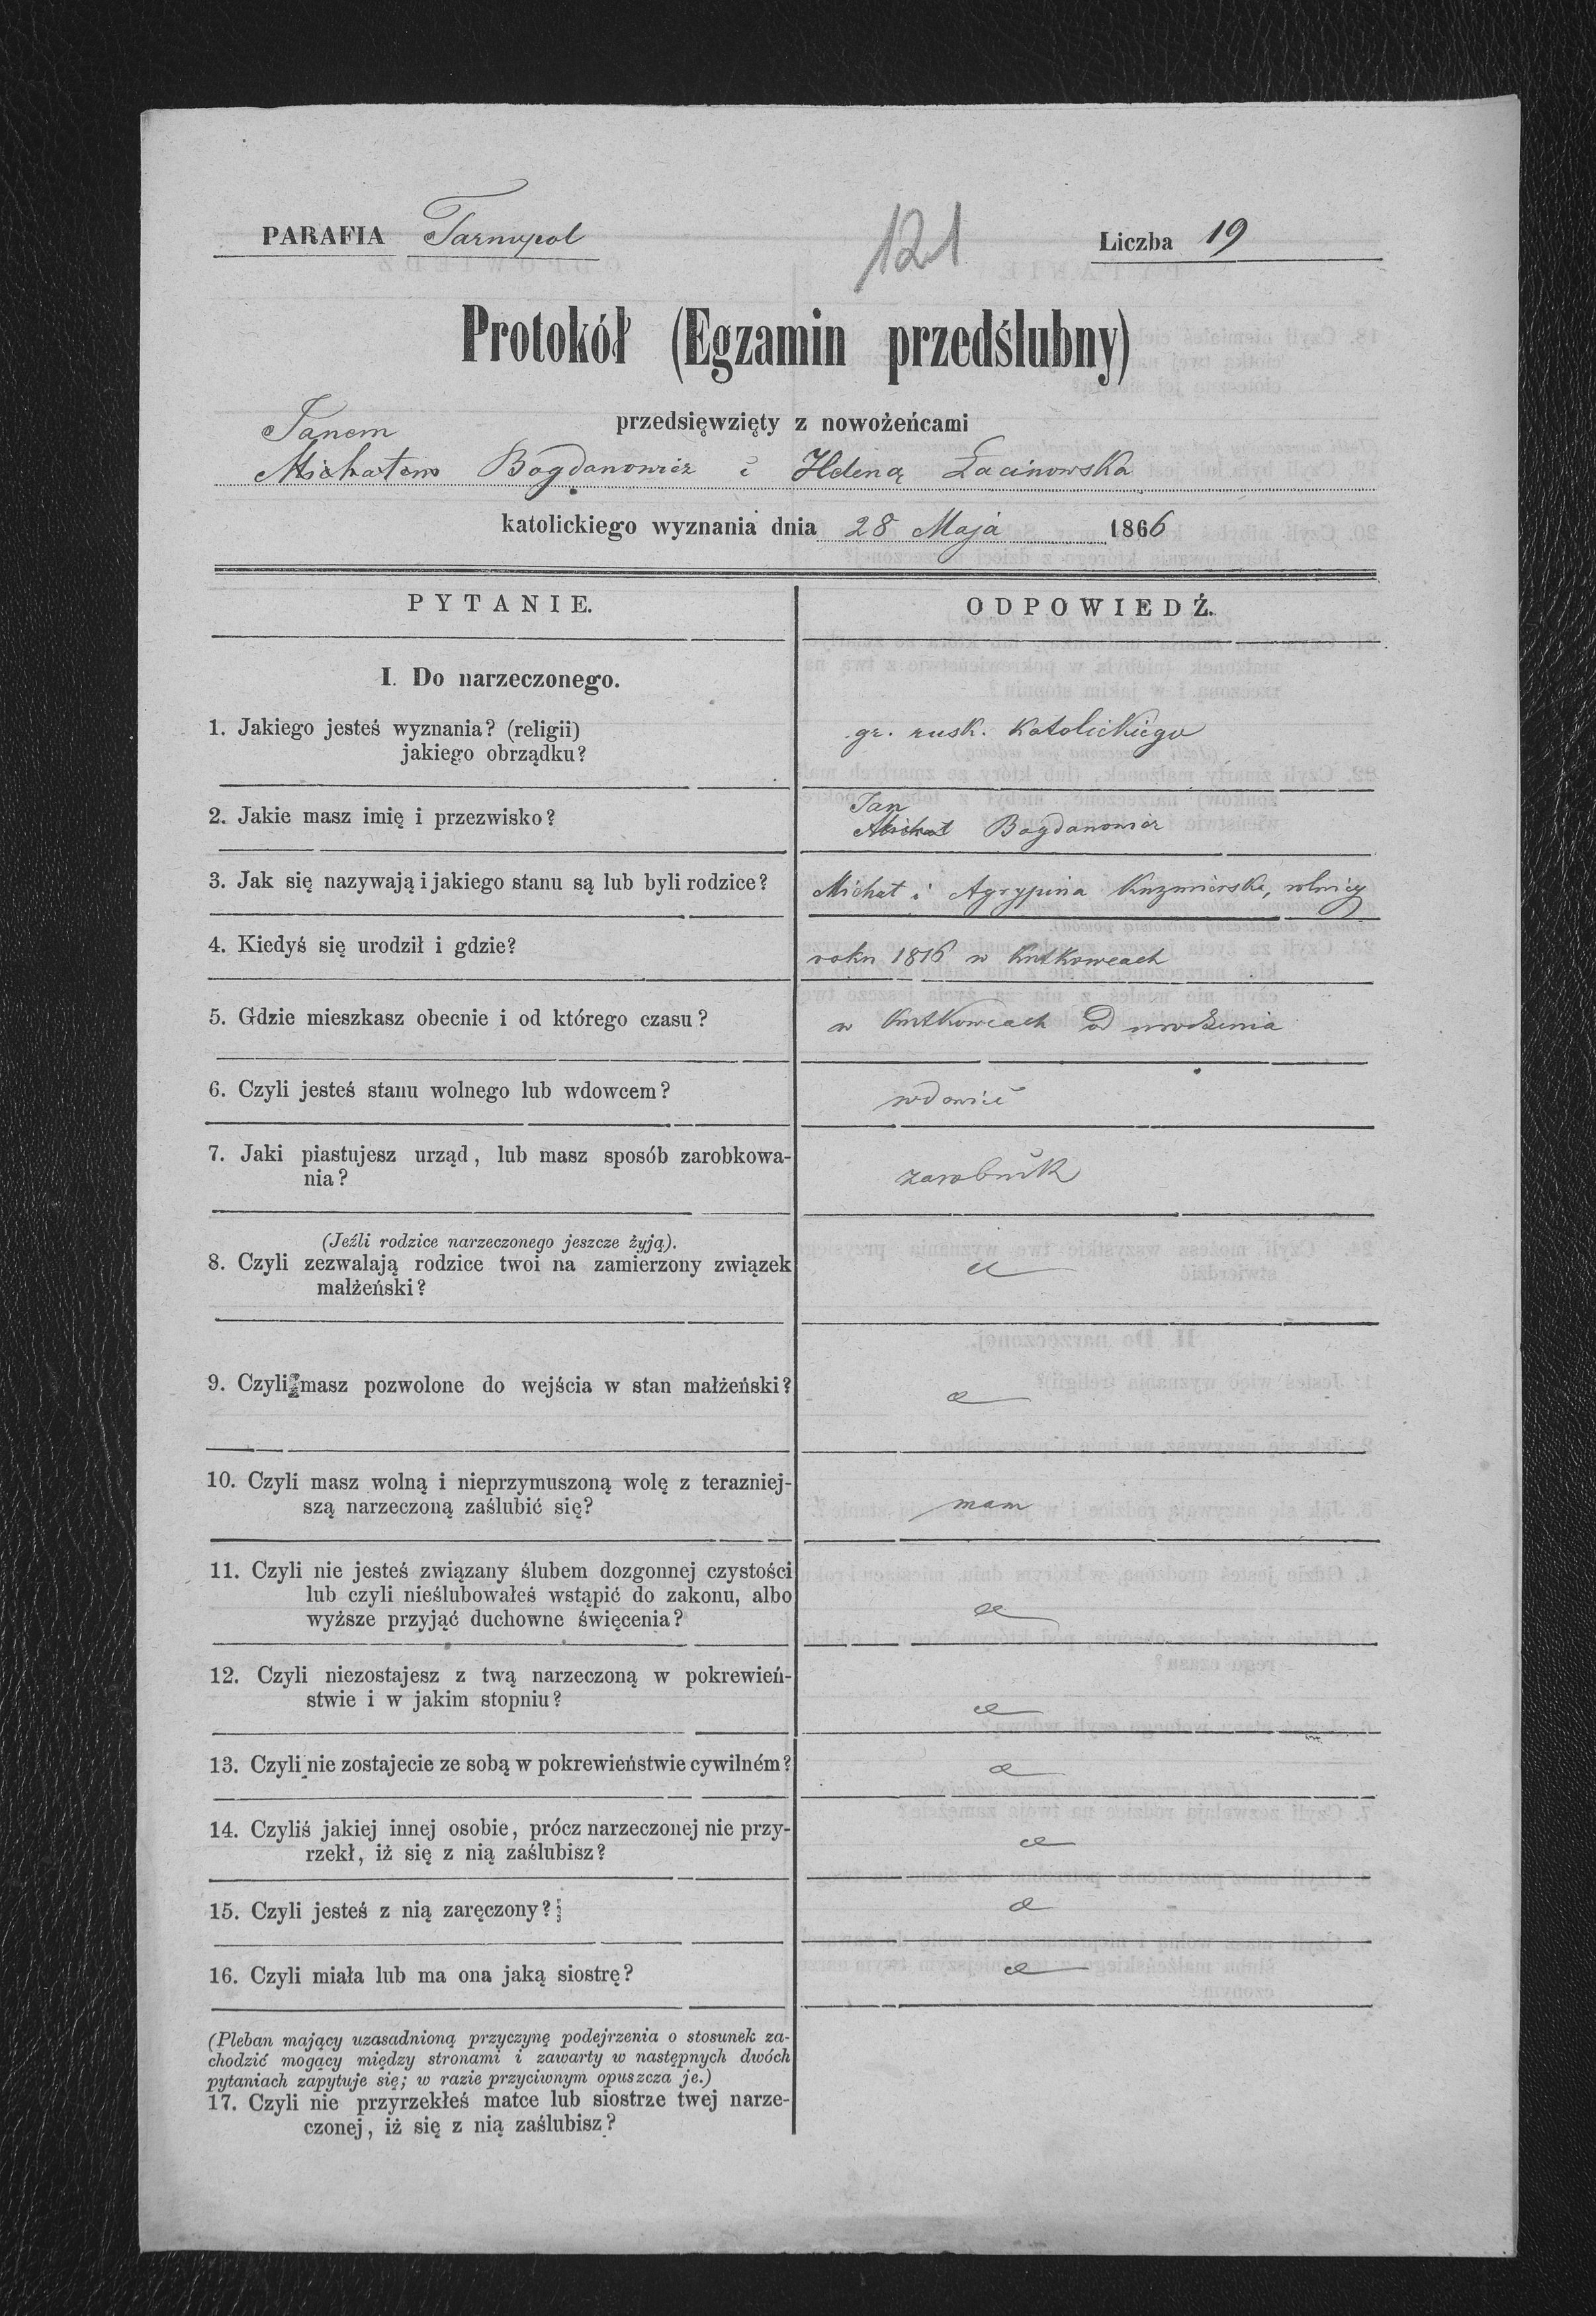 PARAFIA Tarnopol 121 Liczba 19
Protokół (Egzamin przedślubny)
przedsięwzięty z nowożeńcami
Janem
Michałem Bogdanowicz i Heleną Łacinowska
katolickiego wyznania dnia 28 Maja 1866
PYTANIE. ODPOWIEDŹ.
I. Do narzeczonego.
1. Jakiego jesteś wyznania? (religii)
jakiego obrządku?
gr. rusk. katolickiego
2. Jakie masz imię i przezwisko?
Jan
Michał Bogdanowicz
3. Jak się nazywają i jakiego stanu są lub byli rodzice?
Michał i Agrypina Kuzmińska, rolnicy
4. Kiedyś się urodził i gdzie?
roku 1816 w Kutkowcach
5. Gdzie mieszkasz obecnie i od którego czasu?
w Kutkowcach od urodzenia
6. Czyli jesteś stanu wolnego lub wdowcem?
wdowiec
7. Jaki piastujesz urząd, lub masz sposób zarobkowa-
nia?
zarobnik
(Jeźli rodzice narzeczonego jeszcze żyją).
8. Czyli zezwalają rodzice twoi na zamierzony związek
małżeński?
9. Czyli masz pozwolone do wejścia w stan małżeński?
10. Czyli masz wolną i nieprzymuszoną wolę z terazniej-
szą narzeczoną zaślubić się?
mam
11. Czyli nie jesteś związany ślubem dozgonnej czystości
lub czyli nieślubowałeś wstąpić do zakonu, albo
wyższe przyjąć duchowne święcenia?
12. Czyli niezostajesz z twą narzeczoną w pokrewień-
stwie i w jakim stopniu?
13. Czyli nie zostajecie ze sobą w pokrewieństwie cywilném?
14. Czyliś jakiej innej osobie, prócz narzeczonej nie przy-
rzekł, iż się z nią zaślubisz?
15. Czyli jesteś z nią zaręczony?
16. Czyli miała lub ma ona jaką siostrę?
(Pleban mający uzasadnioną przyczynę podejrzenia o stosunek za-
chodzić mogący między stronami i zawarty w następnych dwóch
pytaniach zapytuje się; w razie przyciwnym opuszcza je.)
17. Czyli nie przyrzekłeś matce lub siostrze twej narze-
czonej, iż się z nią zaślubisz?